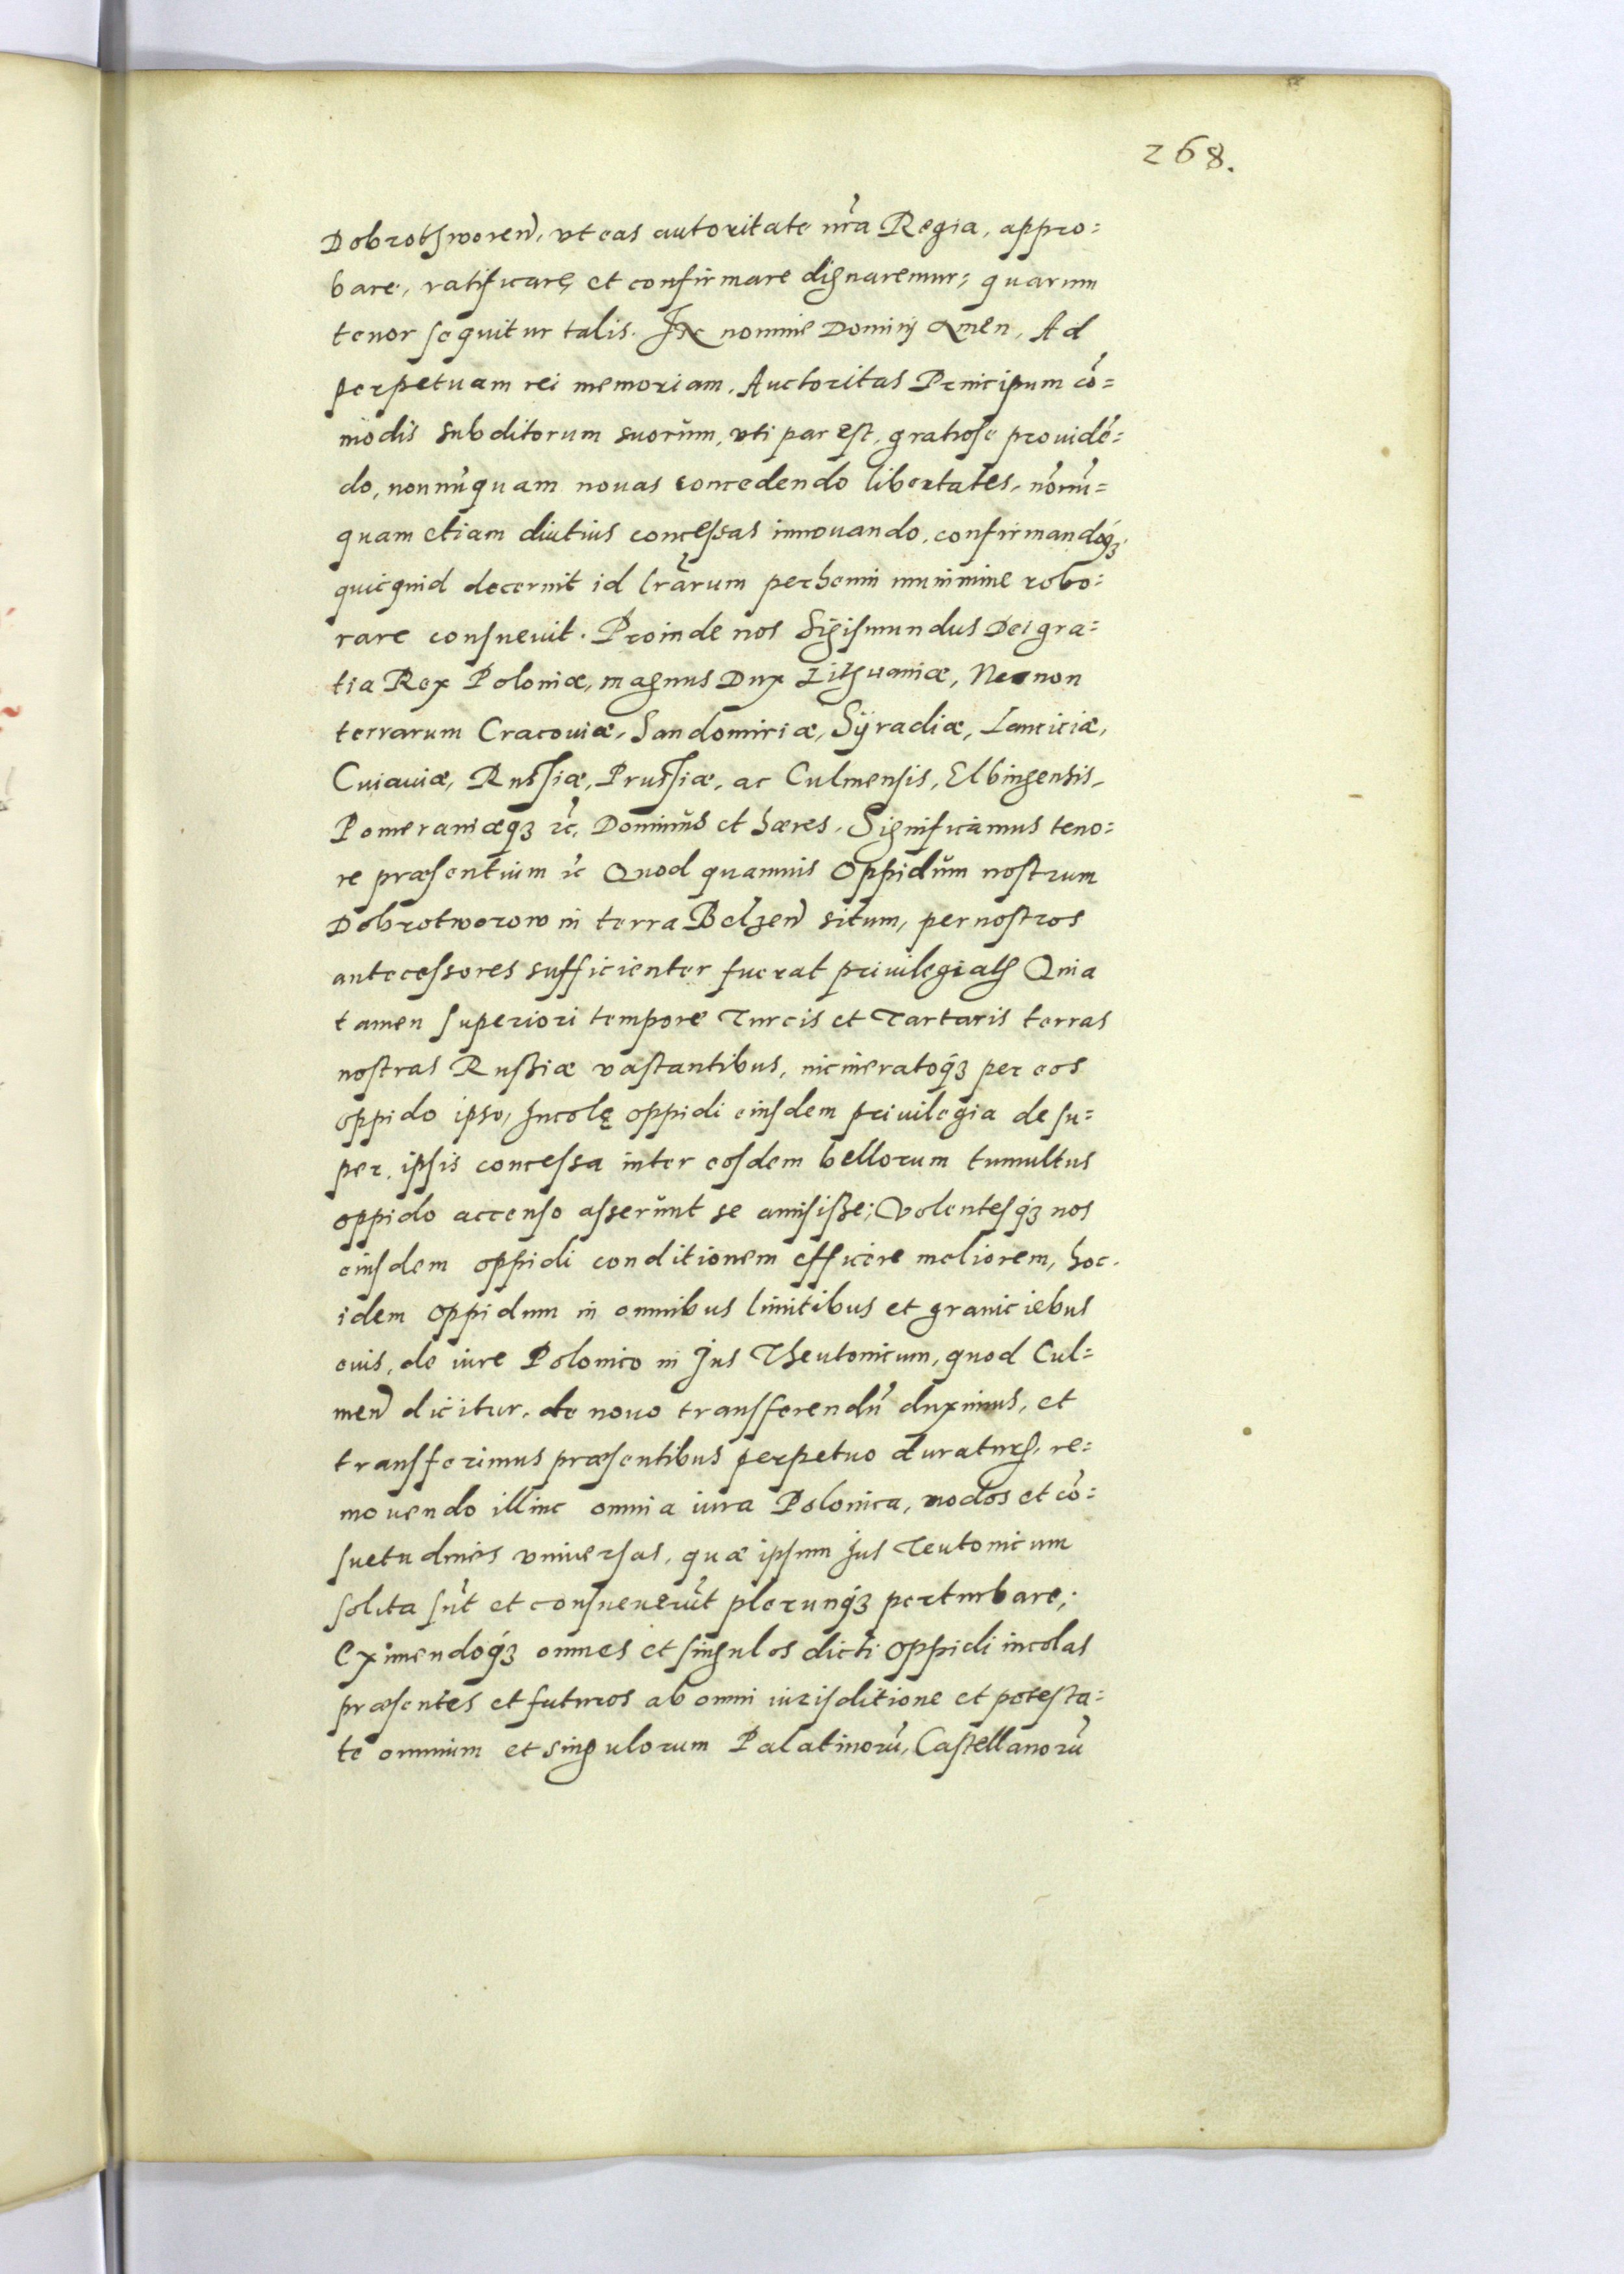 268.
Dobrothworen̄, vt eas autoritate nr̄a Regia, appro=
bare, ratificare, et confirmare dignaremur; quarum
tenor sequitur talis. In nomine Dominj Amen, Ad
perpetuam rei memoriam. Auctoritas Principum cō=
modis subditorum suorum, vti par est, gratiose prouidē=
do, nonnūquam nouas concedendo libertates, nōnū=
quam etiam diutius concessas innouando, confirmandoq́ꝫ
quicquid decernit id lr̄arum perhenni munimine robo=
rare consueuit. Proinde nos Sigismundus Dei gra=
tia Rex Poloniæ, magnus Dux Lithuaniæ, Necnon
terrarum Cracouiæ, Sandomiriæ, Sÿradiæ, Lanciciæ,
Cuiauiæ, Russiæ, Prussiæ, ac Culmensis, Elbingensis,
Pomeraniæqꝫ ꝛc̄, Dominus et hæres. Significamus teno=
re præsentium ꝛc̄ Quod quamuis Oppidŭm nostrum
Dobrotworow in terra Belzen̄ situm, per nostros
antecessores sufficienter fuerat priuilegiatꝫ Quia
tamen superiori tempore Turcis et Tartaris terras
nostras Russiæ vastantibus, incineratoq́ꝫ per eos
oppido ipso, Incolę oppidi eiusdem priuilegia desu=
per ipsis concessa inter eosdem bellorum tumultus
oppido accenso asserŭnt se amisisse; Volentesq́ꝫ nos
eiusdem oppidi conditionem efficere meliorem, hoc
idem oppidum in omnibus limitibus et graniciebus
euis, de iure Polonico in Jus Theutonicum, quod Cul=
men̄ dicitur, de nouo transferendū duximus, et
transferimus præsentibus perpetuo duraturꝫ, re=
mouendo illinc omnia iura Polonica, modos et cō=
suetudines vniuersas, quæ ipsum Jus Teutonicum
solita sūt et consueuerūt plerunq́ꝫ perturbare;
Eximendoq́ꝫ omnes et singulos dicti Oppidi incolas
præsentes et futuros ab omni iurisditione et potesta=
te omnium et singulorum Palatinorū, Castellanorū